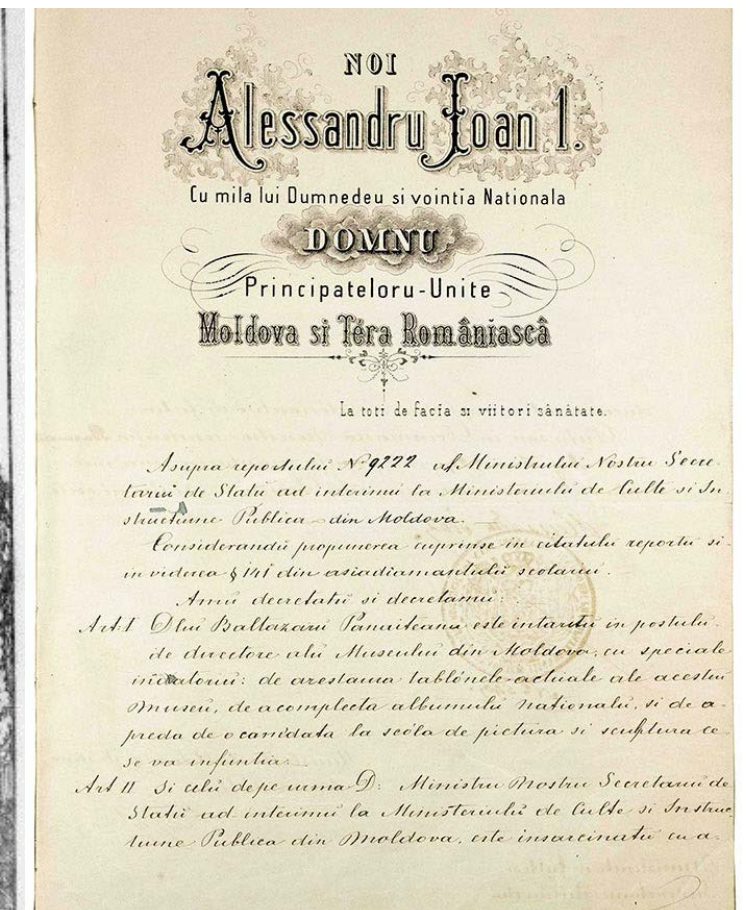 NOI
Alessandru Ioan 1.
Cu mila lui Dumnedeu si vointia Nationala
DOMNU
Principateloru-Unite
Moldova si Téra Româniască
La toti de facia si viitori sănătate.
Asupra reportului Nº 9222 al Ministrului Nostru Secre-
tariu de Statu ad interimu la Ministeriulu de Culte si In
structiune Publica din Moldova.
Considerandu propunerea cuprinse in citatulu reportu si
in viderea § 141 din asiadiamantulu scolariu.
Amu decretatu si decretamu:
Art. I Dlui Baltazaru Panaiteanu este intaritu in postulu
de directore alu Museului din Moldova, cu speciale
indatoriri: de a restaura tablónele actuale ale acestui
Museu, de a complecta albumulu nationalu, si de a
preda de o camdata la scóla de pictura si sculptura ce
se va infiintia.
Art II Si celu depe urma D: Ministru Nostru Secretariu de
Statu ad interimu la Ministeriulu de Culte si Instruc
tiune Publica din Moldova, este insarcinatu cu a-